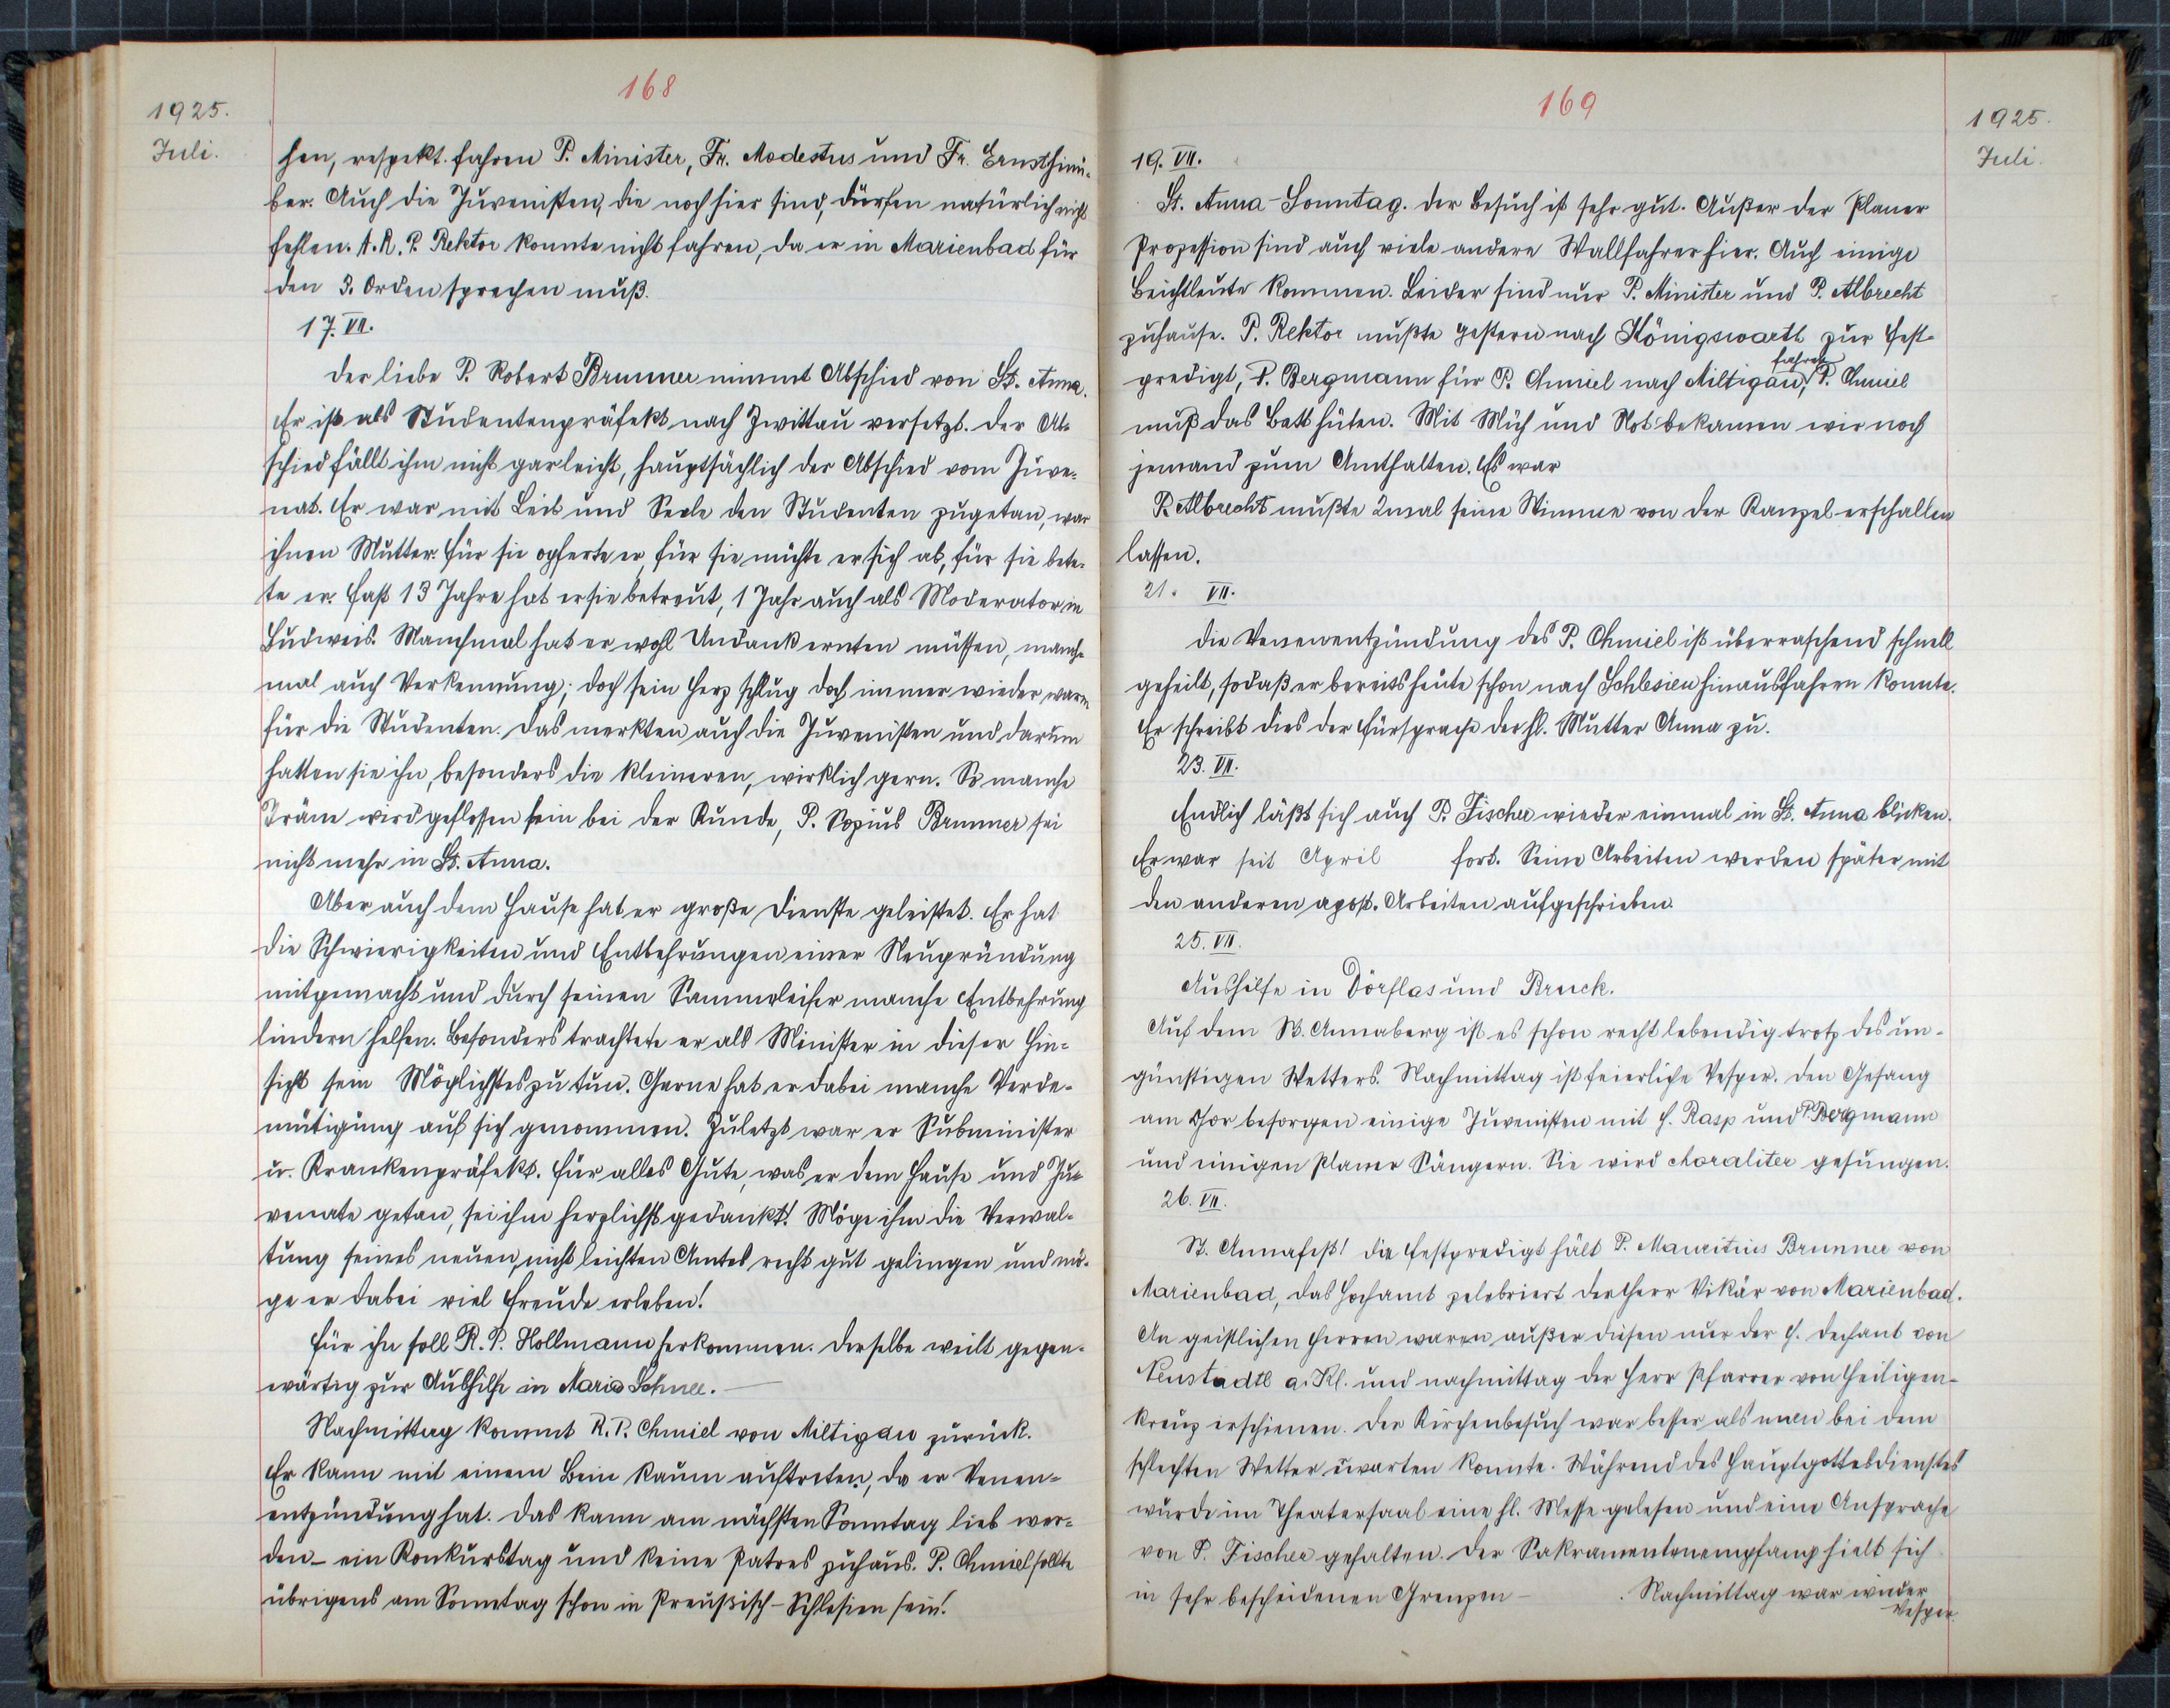 168
1925.
Juli.
hen, respekt. fahren P. Minister, Fr. Modestus und Fr. Ernst hinü-
ber. Auch die Juvenisten, die noch hier sind, dürfen natürlich nicht
fehlen. A. R. P. Rektor konnte nicht fahren, da er in Marienbad für
den 3. Orden sprechen muß.
17. VII.
Der liebe P. Robert Brunner nimmt Abschied von St. Anna.
Er ist als Studentenpräfekt nach Zwittau versetzt. Der Ab-
schied fällt ihm nicht gar leicht, hauptsächlich der Abschied vom Juve-
nat. Er war mit Leib und Seele den Studenten zugetan, war
ihnen Mutter. Für sie opferte er, für sie mühte er sich ab, für sie bete-
te er. Fast 13 Jahre hat er sie betreut, 1 Jahr auch als Moderator in
Budweis. Manchmal hat er wohl Undank ernten müssen, manch-
mal auch Verkennung; doch sein Herz schlug doch immer wieder warm
für die Studenten. Das merkten auch die Juvenisten und darum
hatten sie ihn, besonders die kleineren, wirklich gern. So manche
Träne wird geflossen sein bei der Kunde, P. Sozius Brunner sei
nicht mehr in St. Anna.
Aber auch dem Hause hat er große Dienste geleistet. Er hat
die Schwierigkeiten und Entbehrungen einer Neugründung
mitgemacht und durch seinen Sammeleifer manche Entbehrung
lindern helfen. Besonders trachtete er als Minister in dieser Hin-
sicht sein Möglichstes zu tun. Gerne hat er dabei manche Verde-
mütigung auf sich genommen. Zuletzt war er Subminister
u. Krankenpräfekt. Für alles Gute, was er dem Hause und Ju-
venate getan, sei ihm herzlichst gedankt! Möge ihm die Verwal-
tung seines neuen, nicht leichten Amtes recht gut gelingen und mö-
ge er dabei viel Freude erleben!
Für ihn soll R. P. Hollmann herkommen. Derselbe weilt gegen-
wärtig zur Aushilfe in Maria Schnee. —
Nachmittag kommt R. P. Chmiel von Miltigau zurück.
Er kann mit einem Bein kaum auftreten, da er Venen-
entzündung hat. Das kann am nächsten Sonntag lieb wer-
den – ein Konkurstag und keine Patres zuhaus. P. Chmiel sollte
übrigens am Sonntag schon in Preußisch-Schlesien sein!
169
1925.
Juli.
19. VII.
St. Anna-Sonntag. Der Besuch ist sehr gut. Außer der Planer
Prozession sind auch viele andere Wallfahrer hier. Auch einige
Beichtleute kommen. Leider sind nur P. Minister und P. Albrecht
zuhause. P. Rektor mußte gestern nach Königswarth zur Fest-
fahren
predigt, P. Bergmann für P. Chmiel nach Miltigau, P. Chmiel
muß das Bett hüten. Mit Müh und Not bekamen wir noch
jemand zum Amthalten. Es war
P. Albrecht mußte 2mal seine Stimme von der Kanzel erschallen
lassen.
21. VII.
Die Venenentzündung des P. Chmiel ist überraschend schnell
geheilt, sodaß er bereits heute schon nach Schlesien hinausfahren konnte.
Er schreibt dies der Fürsprache der hl. Mutter Anna zu.
23. VII.
Endlich läßt sich auch P. Fischer wieder einmal in St. Anna blicken.
Er war seit April fort. Seine Arbeiten werden später mit
den anderen apost. Arbeiten aufgeschrieben.
25. VII.
Aushilfe in Dörflas und Bruck.
Auf dem St. Annaberg ist es schon recht lebendig trotz des un-
günstigen Wetters. Nachmittag ist feierliche Vesper. Den Gesang
am Chor besorgen einige Juvenisten mit H. Rasp und P. Bergmann
und einigen Planer Sängern. Sie wird choraliter gesungen.
26. VII.
St. Annafest! Die Festpredigt hält P. Mauritius Brunner von
Marienbad, das Hochamt zelebriert der Herr Vikär von Marienbad.
An geistlichen Herren waren außer diesen nur der H. Dechant von
Neustadtl a. Kl. und nachmittag der Herr Pfarrer von Heiligen-
kreuz erschienen. Der Kirchenbesuch war besser als man bei dem
schlechten Wetter erwarten konnte. Während des Hauptgottesdienstes
wurde im Theatersaal eine hl. Messe gelesen und eine Ansprache
von P. Fischer gehalten. Der Sakramentenempfang hielt sich
in sehr bescheidenen Grenzen – . Nachmittag war wieder
Vesper.